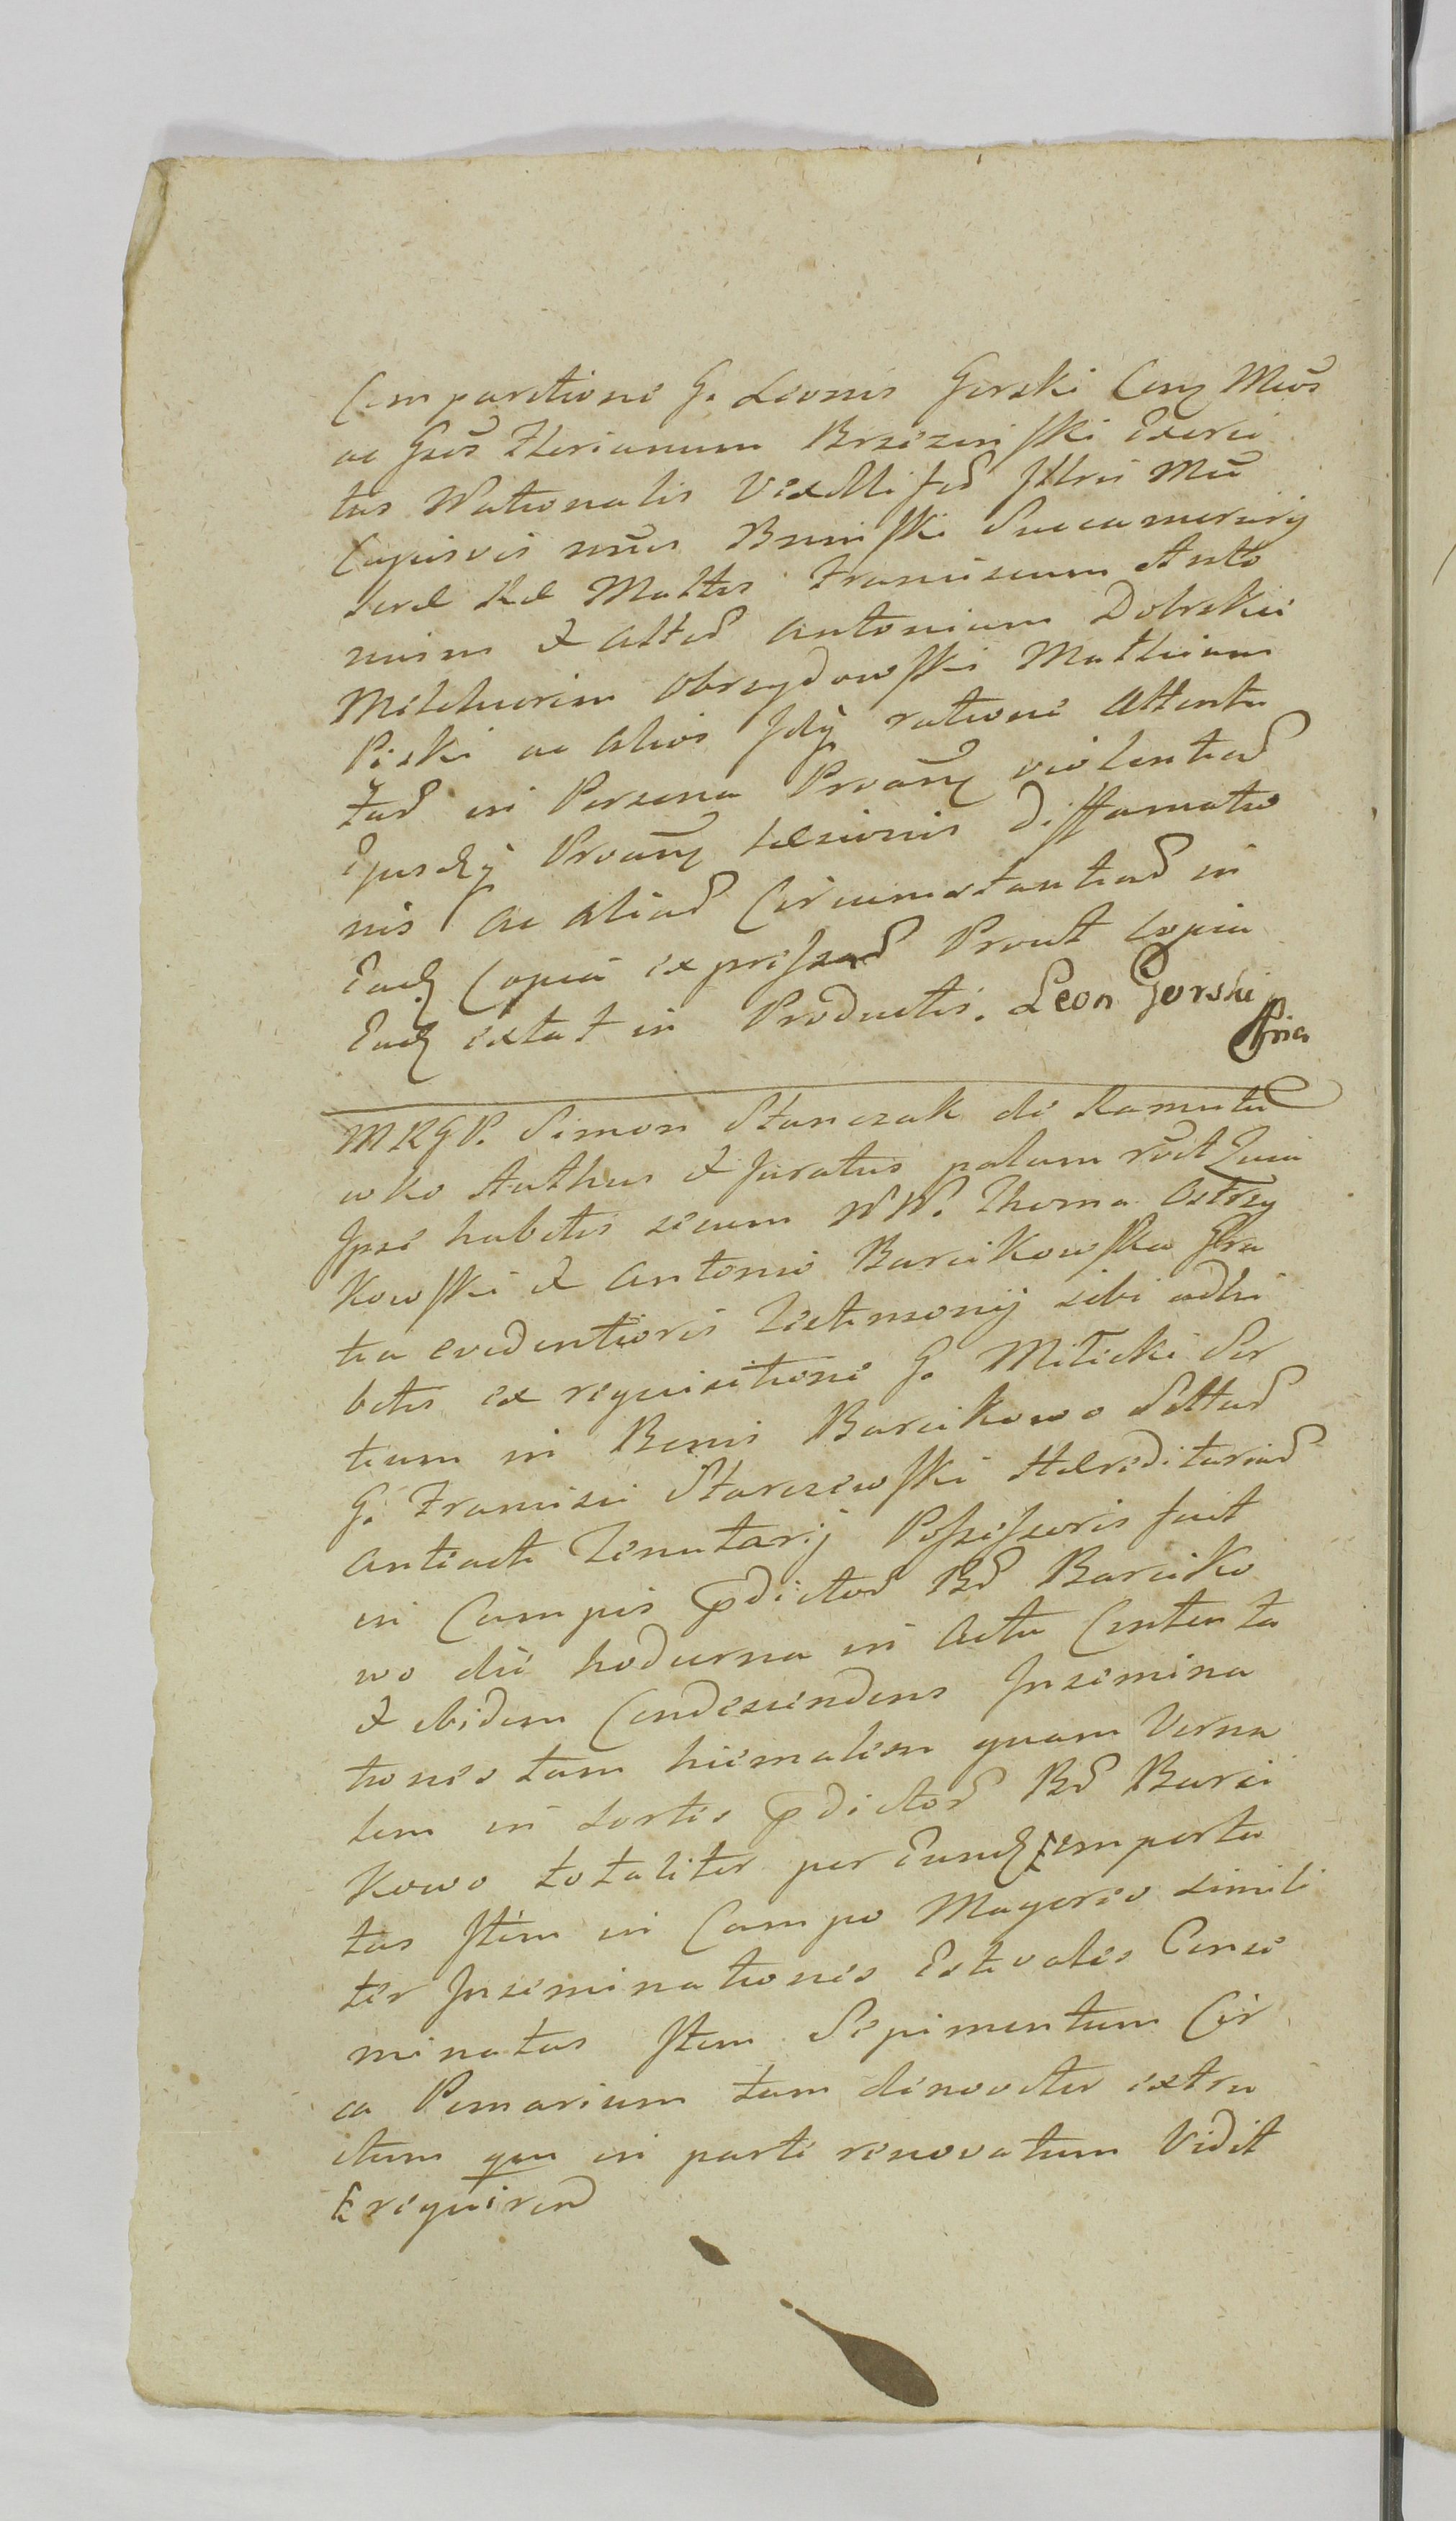 Comparitione G. Leonis Gorski Conz Meos
ac Gsos Florianum Brzezinski Exerci
tus Nationalis Vexilli sed Illris Mci
Capinovis Bninski Succamerarij
Sere Rle Mattis Franciscum Anto
nium & alter Antonium Dobrskie
Melchiorem Obrzydowski Mathiam
Piski ac alios Idq ratione attenta
tar in Persona Proanz violentiar
Ejusdq Proanz lesionis diffamatio
nis ac aliar Circumstantiar in
Eadz Copia expressar Prout Copia
Eadz extat in Productis. Leon Gorski
mpria
MRGP. Simon Stanczak de Ramuto
wko Authus & Juratus palam rclt Quia
Ipse habitis secum NN. Thoma Ostrzy
kowski & Antonio Barcikowska Gra
tia evidentioris Testimonij sibi adhi
bitis ex requisitione G. Milicki Sor
tium in Bonis Barcikowo dictar
G. Francisci Starczewski Hereditariar
antiacti Tenutarij Possessoris fuit
in Campis pdictor Br Barciko
wo die hodierna in Actu Contenta
& ibidem Condescendens Insemina
tiones tam hiemalem quam Verna
lem in sortes pdictor Br Barci
kowo totaliter per Eundz comporta
tas Item in Campo Majores simili
ter Inseminationes Estivales Conse
minatas Item Sepimentum Cir
ca Pomarium tam denoviter extru
ctum qm in parte renovatum Vidit
& requirend